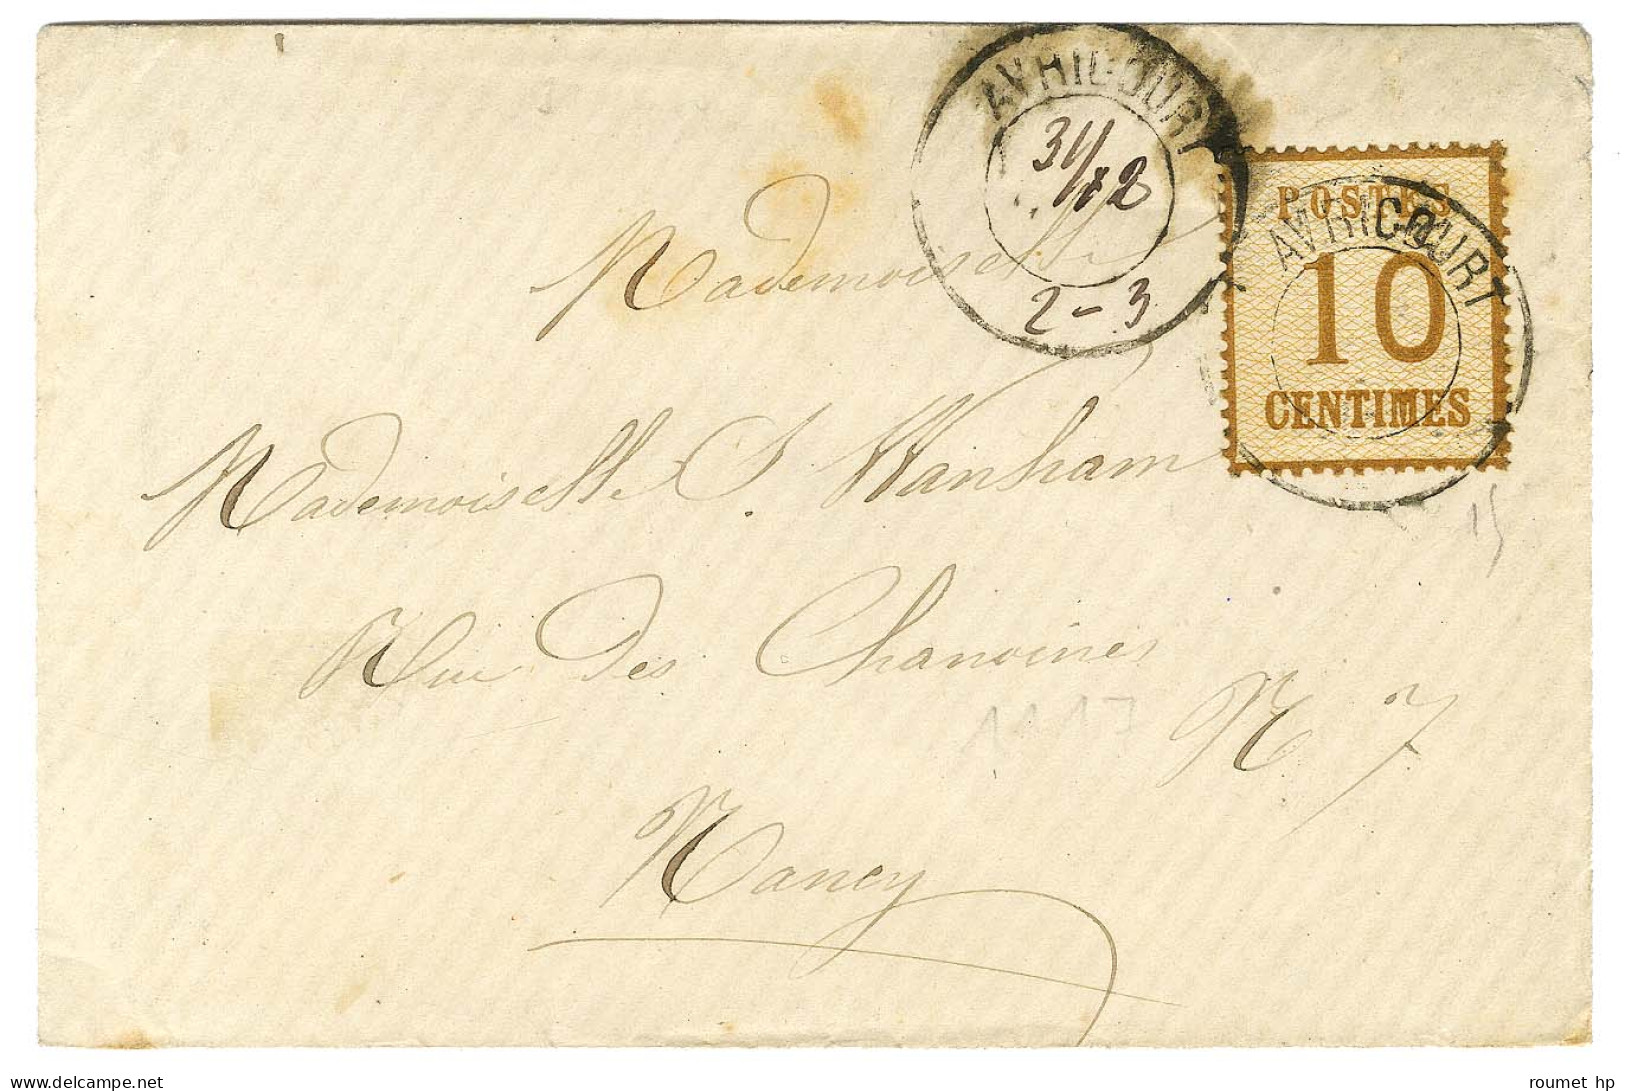 AVRICOURT
31/12
2-3
POSTES
AVRICOURT
10
CENTIMES
Mademoiselle
Mademoiselle S. Wanham
15
Rue des Chanoines
1117
N 7
Nancy
delcampe.net
roumet hp